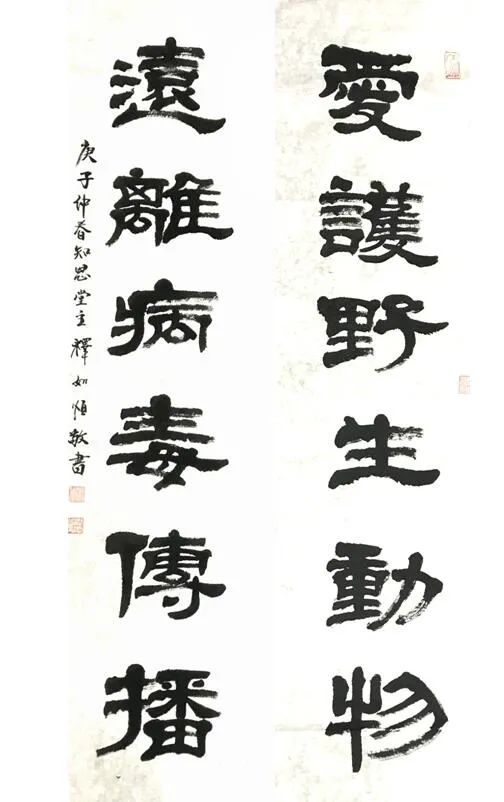 愛護野生動物
遠離病毒傳播
庚子仲春知思堂主釋如恒敬書